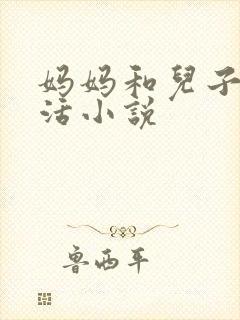 妈妈和兒子
活小说
鲁西平